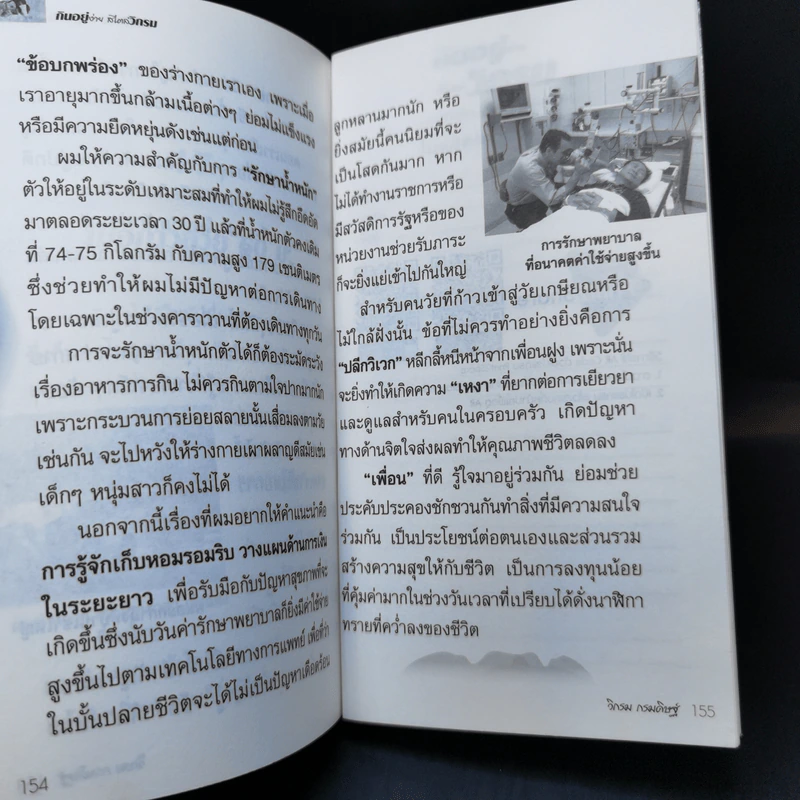 กินอยู่ง่าย สไตล์วิกรม
"ข้อบกพร่อง" ของร่างกายเราเอง เพราะเมื่อ
เราอายุมากขึ้นกล้ามเนื้อต่างๆ ย่อมไม่แข็งแรง
หรือมีความยืดหยุ่นดังเช่นแต่ก่อน
ผมให้ความสำคัญกับการ "รักษาน้ำหนัก"
ตัวให้อยู่ในระดับเหมาะสมที่ทำให้ผมไม่รู้สึกอึดอัด
มาตลอดระยะเวลา 30 ปี แล้วที่น้ำหนักตัวคงเดิม
ที่ 74-75 กิโลกรัม กับความสูง 179 เซนติเมตร
ซึ่งช่วยทำให้ผมไม่มีปัญหาต่อการเดินทาง
โดยเฉพาะในช่วงคาราวานที่ต้องเดินทางทุกวัน
การจะรักษาน้ำหนักตัวได้ก็ต้องระมัดระวัง
เรื่องอาหารการกิน ไม่ควรกินตามใจปากมากนัก
เพราะกระบวนการย่อยสลายนั้นเสื่อมลงตามวัย
เช่นกัน จะไปหวังให้ร่างกายเผาผลาญดีสมัยเช่น
เด็กๆ หนุ่มสาวก็คงไม่ได้
นอกจากนี้เรื่องที่ผมอยากให้คำแนะนำคือ
การรู้จักเก็บหอมรอมริบ วางแผนด้านการเงิน
ในระยะยาว เพื่อรับมือกับปัญหาสุขภาพที่จะ
เกิดขึ้นซึ่งนับวันค่ารักษาพยาบาลก็ยิ่งมีค่าใช้จ่าย
สูงขึ้นไปตามเทคโนโลยีทางการแพทย์ เพื่อที่ว่า
ในบั้นปลายชีวิตจะได้ไม่เป็นปัญหาเดือดร้อน
154
ลูกหลานมากนัก หรือ
ยิ่งสมัยนี้คนนิยมที่จะ
เป็นโสดกันมาก หาก
ไม่ได้ทำงานราชการหรือ
มีสวัสดิการรัฐหรือของ
หน่วยงานช่วยรับภาระ
ก็จะยิ่งแย่เข้าไปกันใหญ่
การรักษาพยาบาล
ที่อนาคตค่าใช้จ่ายสูงขึ้น
สำหรับคนวัยที่ก้าวเข้าสู่วัยเกษียณหรือ
ไม้ใกล้ฝั่งนั้น ข้อที่ไม่ควรทำอย่างยิ่งคือการ
"ปลีกวิเวก" หลีกลี้หนีหน้าจากเพื่อนฝูง เพราะนั่น
จะยิ่งทำให้เกิดความ "เหงา" ที่ยากต่อการเยียวยา
และดูแลสำหรับคนในครอบครัว เกิดปัญหา
ทางด้านจิตใจส่งผลทำให้คุณภาพชีวิตลดลง
"เพื่อน" ที่ดี รู้ใจมาอยู่ร่วมกัน ย่อมช่วย
ประคับประคองชักชวนกันทำสิ่งที่มีความสนใจ
ร่วมกัน เป็นประโยชน์ต่อตนเองและส่วนรวม
สร้างความสุขให้กับชีวิต เป็นการลงทุนน้อย
ที่คุ้มค่ามากในช่วงวันเวลาที่เปรียบได้ดั่งนาฬิกา
ทรายที่คว่ำลงของชีวิต
วิกรม กรมดิษฐ์ 155